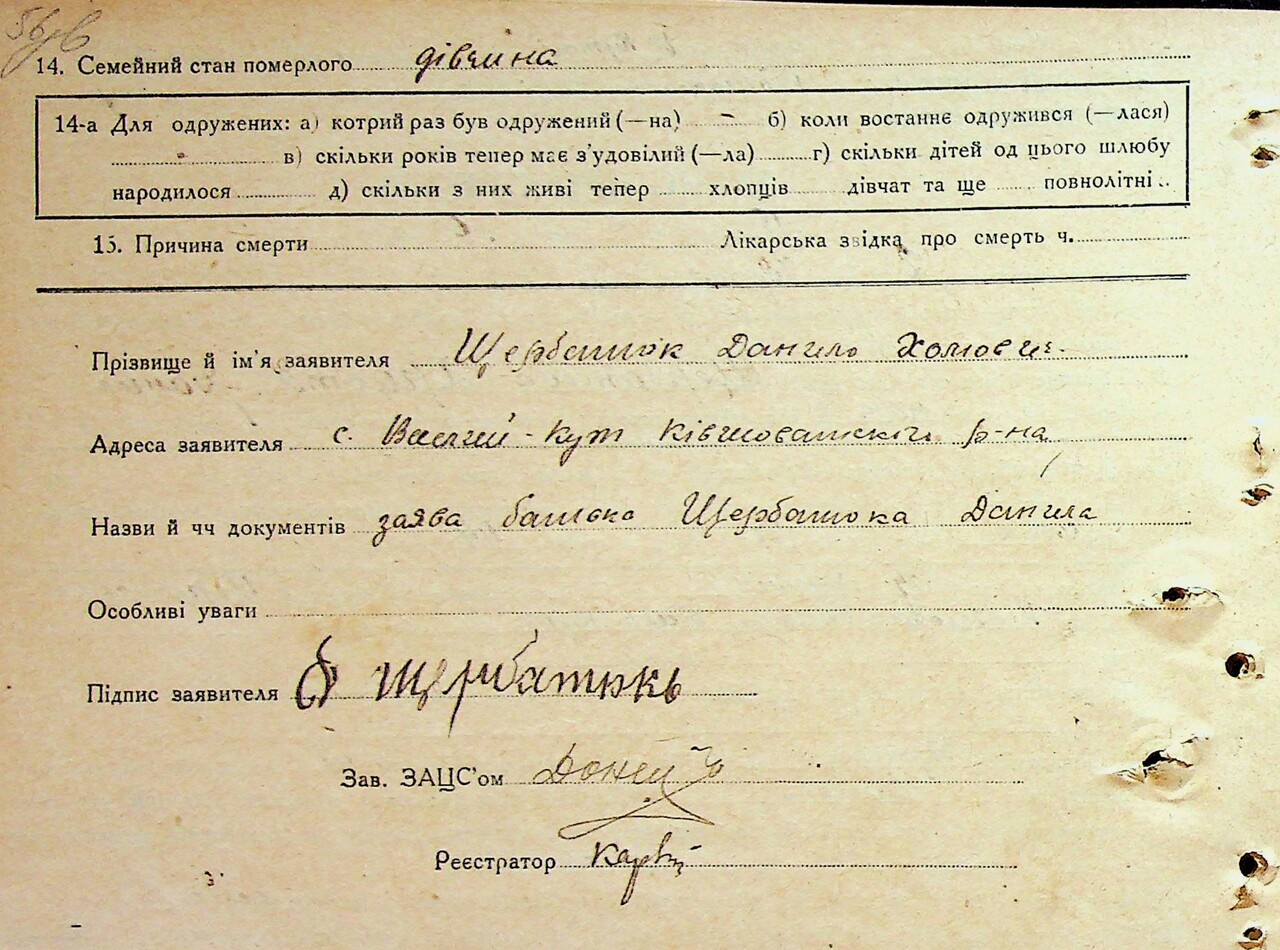 14. Семейний стан померлого дівчина
14-а Для одружених: а) котрий раз був одружений (—на) – б) коли востаннє одружився (—лася)
в) скільки років тепер має з'удовілий (—ла) г) скільки дітей од цього шлюбу
народилося д) скільки з них живі тепер хлопців дівчат та ще повнолітні
15. Причина смерти Лікарська звідка про смерть ч.
Прізвище й ім'я заявителя Щербатюк Данило
Адреса заявителя с. Кут р-на
Назви й чч документів заява батька Щербатюка Данила
Особливі уваги
Підпис заявителя Щербатюкь
Зав. ЗАЦС'ом
Реєстратор